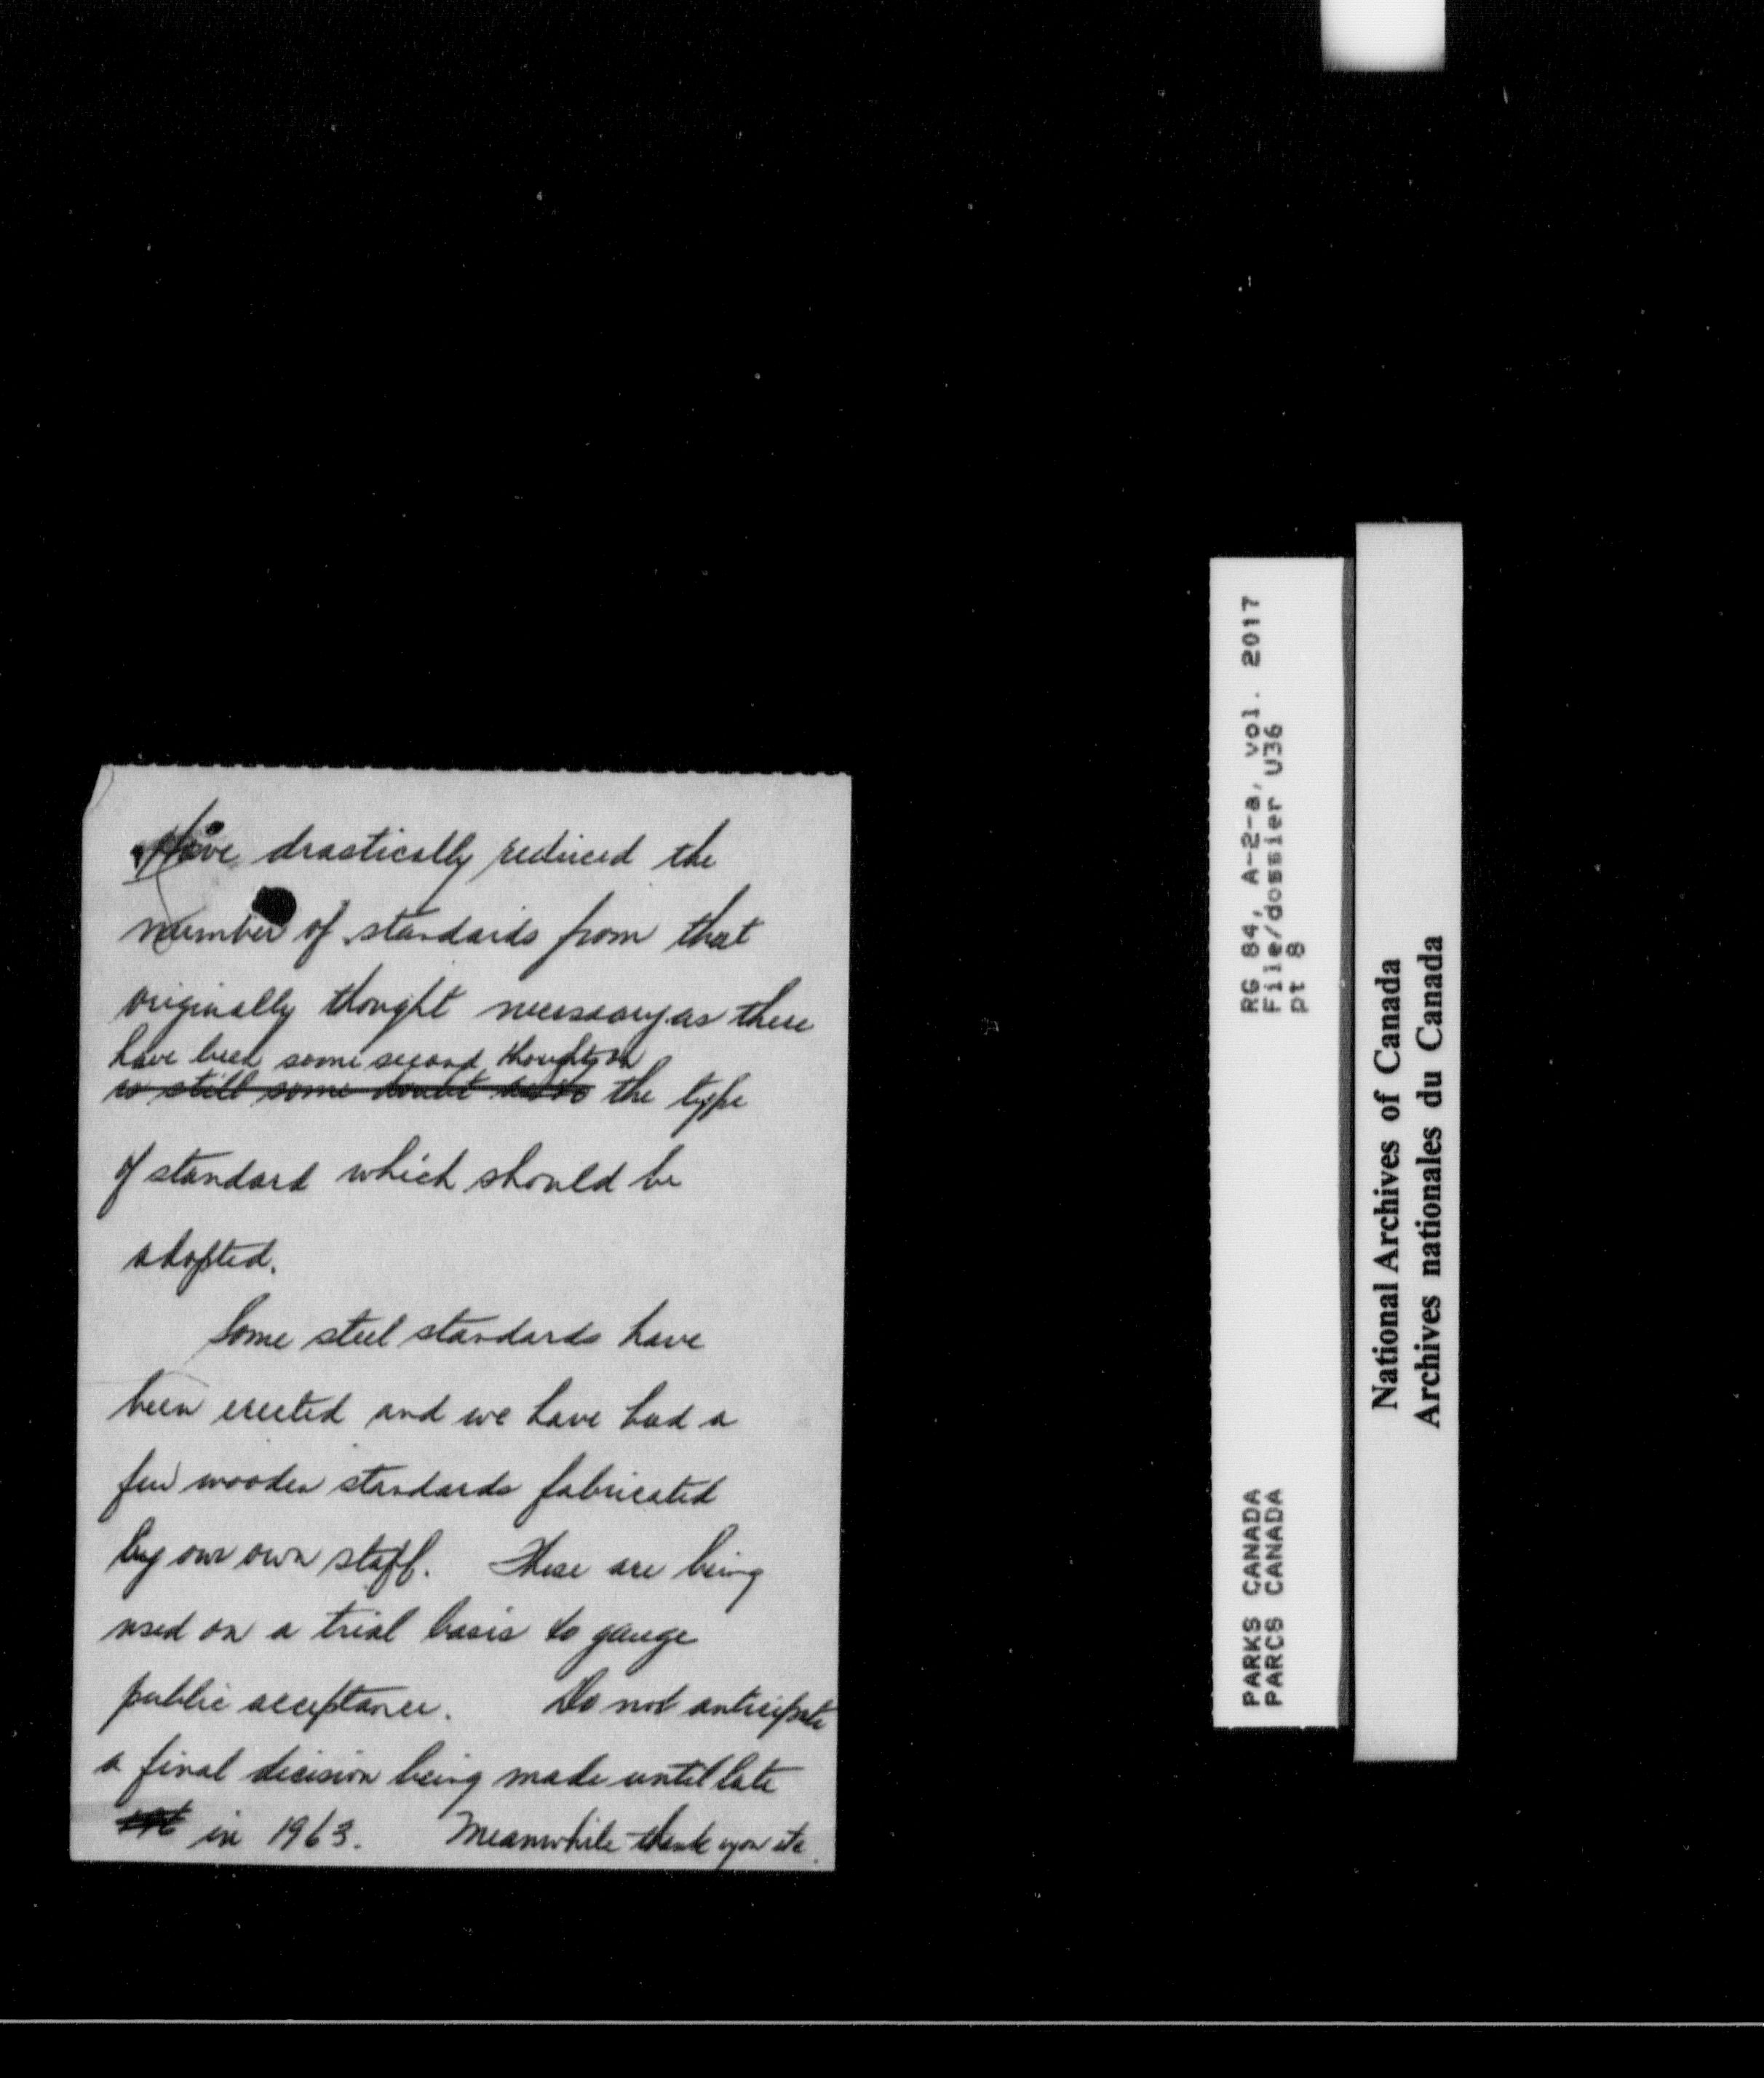 Have drastically reduced the
number of standards from that
originally thought necessary as there
have been some second thoughts on
is still some doubt as to the type
of standard which should be
adopted.
Some steel standards have
been erected and we have had a
few wooden standards fabricated
by our own staff. These are being
used on a trial basis to gauge
public acceptance. Do not anticipate
a final decision being made until late
in 1963. Meanwhile thank you etc.
RG 84, A-2-a, vol. 2017
File/dossier U36
pt 8
PARKS CANADA
PARCS CANADA
National Archives of Canada
Archives nationales du Canada